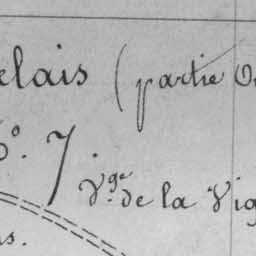 elais (partie O
6º. 7.
Vge. de la Vig
s.